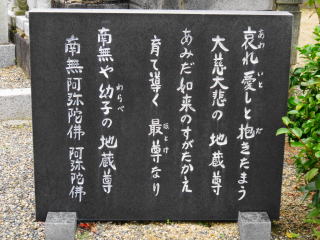 哀れ愛しと抱きたまう
大慈大悲の 地蔵尊
あみだ如来のすがたかえ
育て導く 最尊なり
南無や幼子の 地蔵尊
南無阿弥陀佛 阿弥陀佛